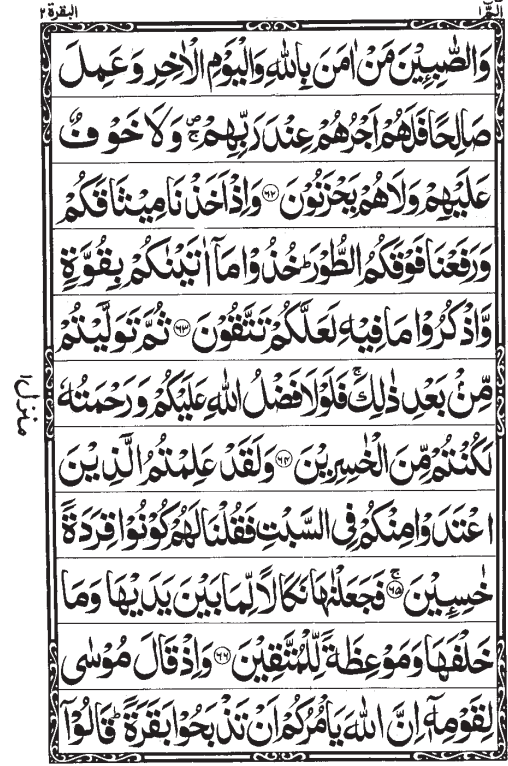 الٓمّٓ ١
البقرة ٢
وَالصّٰبِـِٕيْنَ مَنْ اٰمَنَ بِاللّٰهِ وَالْيَوْمِ الْاٰخِرِ وَعَمِلَ
صَالِحًا فَلَهُمْ اَجْرُهُمْ عِنْدَ رَبِّهِمْ ۪ۚ وَلَا خَوْفٌ
عَلَيْهِمْ وَلَا هُمْ يَحْزَنُوْنَ ﴿٦٢﴾ وَاِذْ اَخَذْنَا مِيْثَاقَكُمْ
وَرَفَعْنَا فَوْقَكُمُ الطُّوْرَ ؕ خُذُوْا مَاۤ اٰتَيْنٰكُمْ بِقُوَّةٍ
وَّاذْكُرُوْا مَا فِيْهِ لَعَلَّكُمْ تَتَّقُوْنَ ﴿٦٣﴾ ثُمَّ تَوَلَّيْتُمْ
مِّنْۢ بَعْدِ ذٰلِكَ ۚ فَلَوْلَا فَضْلُ اللّٰهِ عَلَيْكُمْ وَرَحْمَتُهٗ
لَكُنْتُمْ مِّنَ الْخٰسِرِيْنَ ﴿٦٤﴾ وَلَقَدْ عَلِمْتُمُ الَّذِيْنَ
اعْتَدَوْا مِنْكُمْ فِى السَّبْتِ فَقُلْنَا لَهُمْ كُوْنُوْا قِرَدَةً
خٰسِـِٕيْنَ ﴿٦٥﴾ۚ فَجَعَلْنٰهَا نَكَالًا لِّمَا بَيْنَ يَدَيْهَا وَمَا
خَلْفَهَا وَمَوْعِظَةً لِّلْمُتَّقِيْنَ ﴿٦٦﴾ وَاِذْ قَالَ مُوْسٰى
لِقَوْمِهٖۤ اِنَّ اللّٰهَ يَاْمُرُكُمْ اَنْ تَذْبَحُوْا بَقَرَةً ؕ قَالُوْۤا
منزل ١